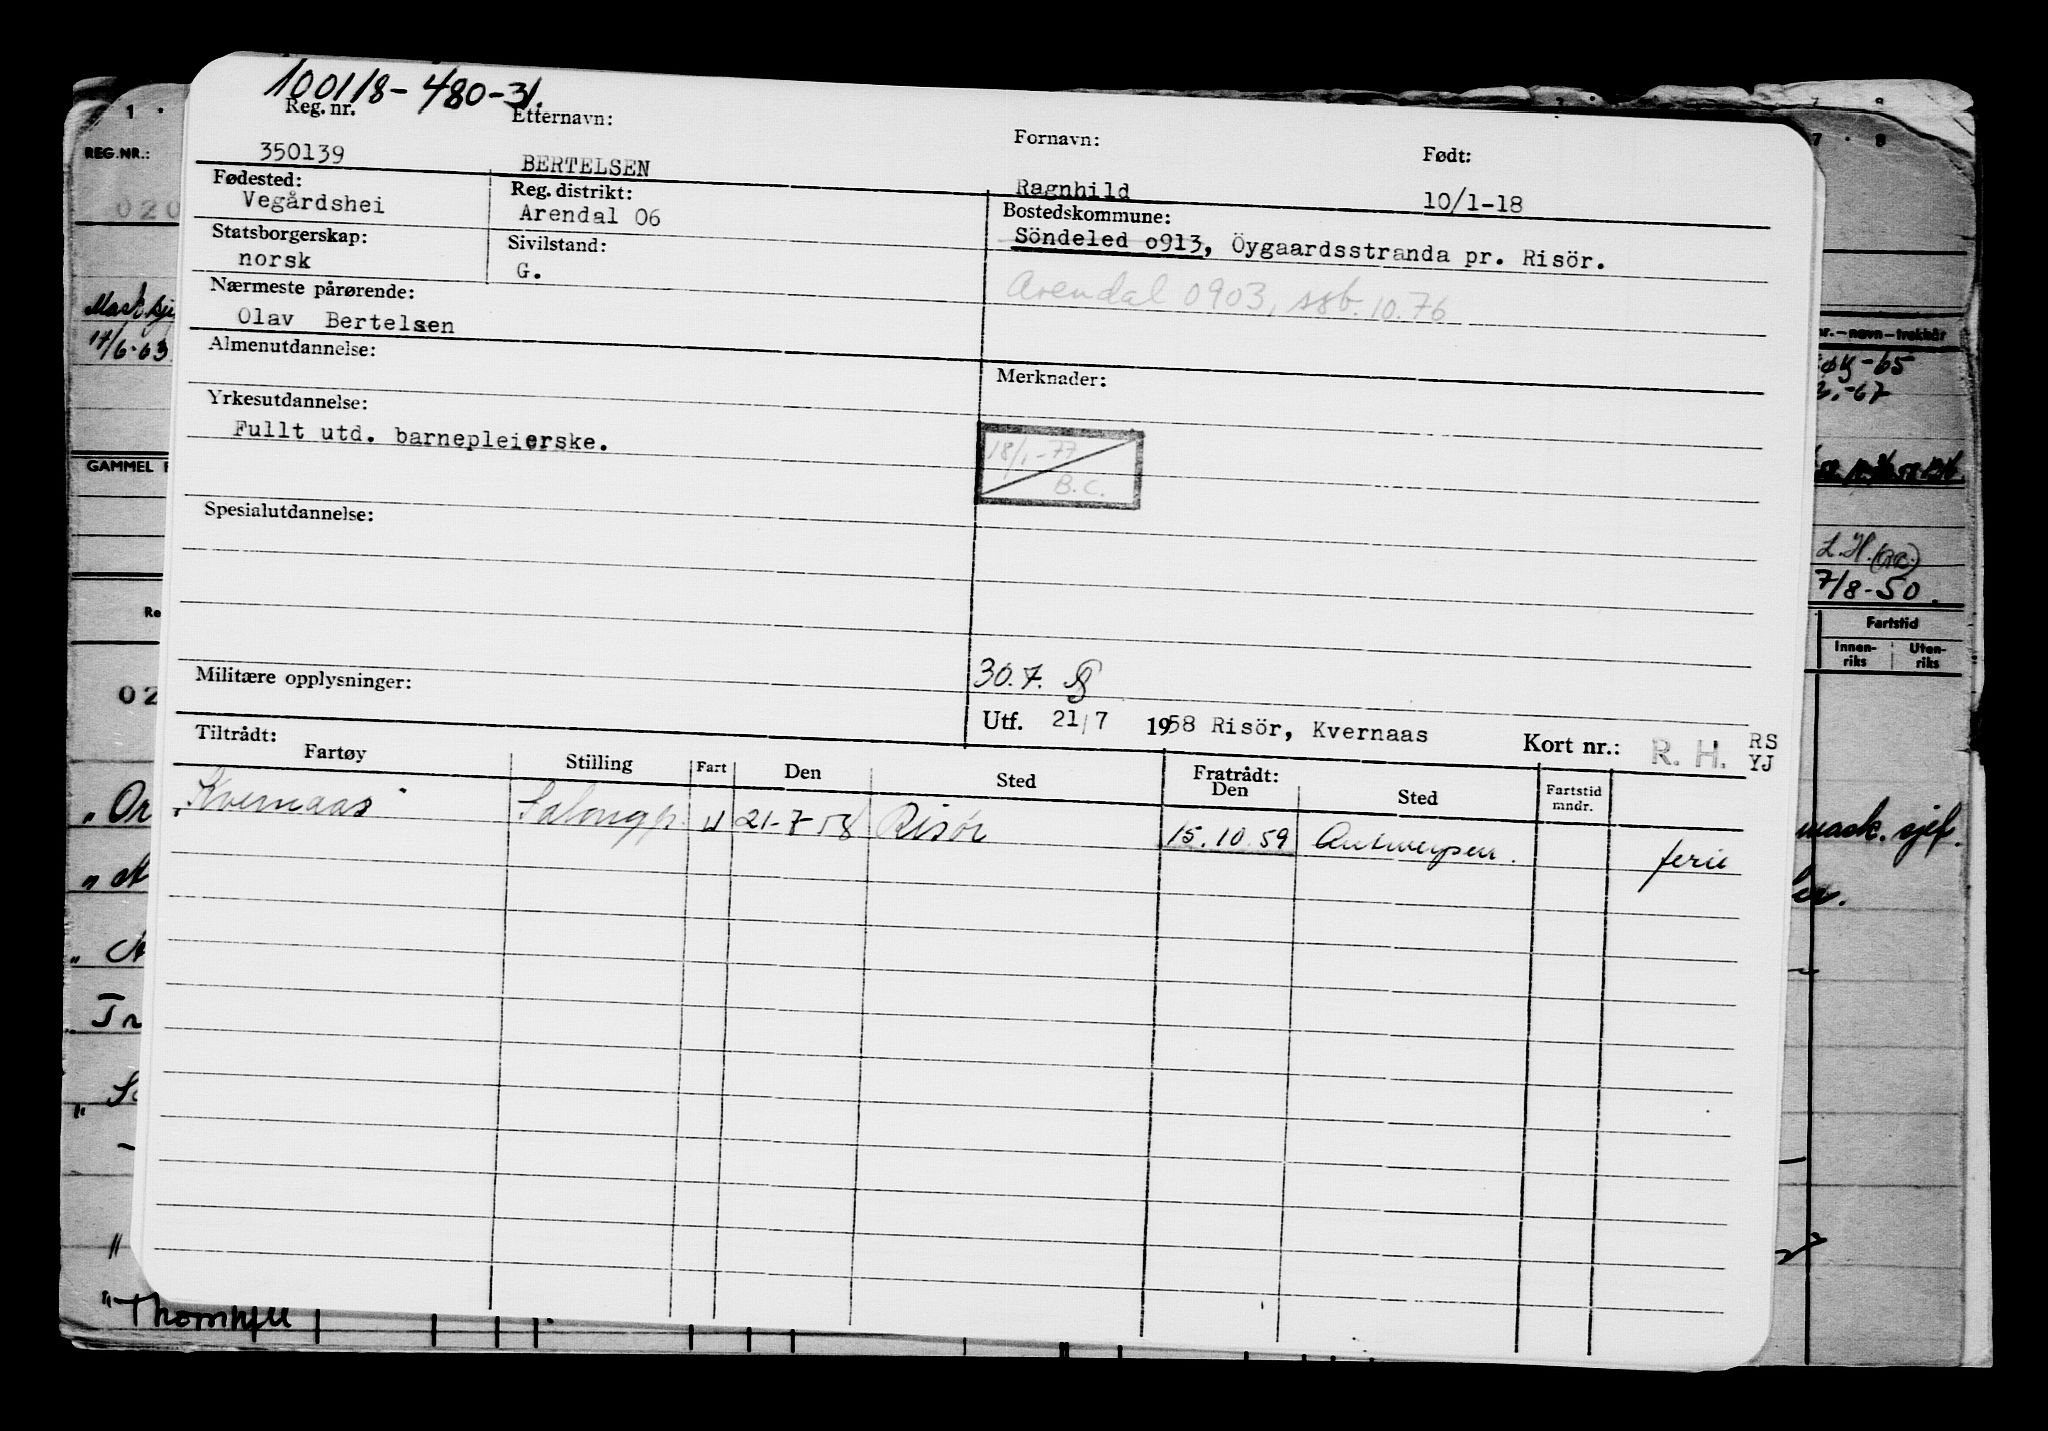 100118-480-31.
Reg. nr. Etternavn: Fornavn: Født:
350139 BERTELSEN Ragnhild 10/1-18
Fødested: Reg. distrikt: Bostedskommune:
Vegårdshei Arendal 06 Söndeled o913, Öygaardsstranda pr. Risör.
Statsborgerskap: Sivilstand:
norsk G. Arendal 0903, 10.76
Nærmeste pårørende:
Olav Bertelsen
Almenutdannelse: Merknader:
Yrkesutdannelse:
Fullt utd. barnepleierske.
18/1-77
B.C.
Spesialutdannelse:
Militære opplysninger: 30.7.
Utf. 21/7 1958 Risör, Kvernaas Kort nr.: R. H. RS
YJ
Tiltrådt: Fratrådt:
Fartøy Stilling Fart Den Sted Den Sted Fartstid
mndr.
"Kvernaas" Salongp. U 21-7 58 Risör 15.10.59 Antwerpen. ferie
1 7 8
REG.NR.: 7 8
020
Mask.sjef
17/6-63
nr.—navn—trekkår
-65
-67
GAMMEL
L.H.
7/8-50.
Fartstid
Innen-
riks
Uten-
riks
02
" Or mask. sjef.
"
"
Tr
"
"
"Thornhill